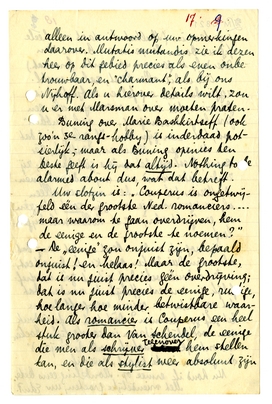 17. 9
alleen in antwoord op uw opmerkingen
daarover. Mutatis mutandis zie ik dezen
heer op dit gebied precies als even onbe-
trouwbaar, en "charmant", als bij ons
Nijhoff. Als u hierover details wilt, zou
u er met Marsman over moeten praten.
Buning over Marie Bashkirtseff (ook
zoo'n 5e rangs-hobby) is inderdaad pot-
sierlijk; maar als Buning opinies ten
beste geeft is hij dat altijd. Nothing to be
alarmed about dus, wat dat betreft.
Uw slotzin is: "Couperus is ongetwij-
feld één der grootste Ned. romanciers....
maar waarom te gaan overdrijven, hem
de eenige en de grootste te noemen?"
— De "eenige" zou onjuist zijn, bepaald
onjuist, en helaas! Maar de grootste,
dat is nu juist precies géén overdrijving;
dat is nu juist precies de eenige, rustige,
hoe langer hoe minder betwistbare waar-
heid. Als romancier is Couperus een heel
stuk grooter dan Van Schendel, de eenige
die men als schrijver tegenover hem stellen
kan, en die als stylist weer absoluut zijn